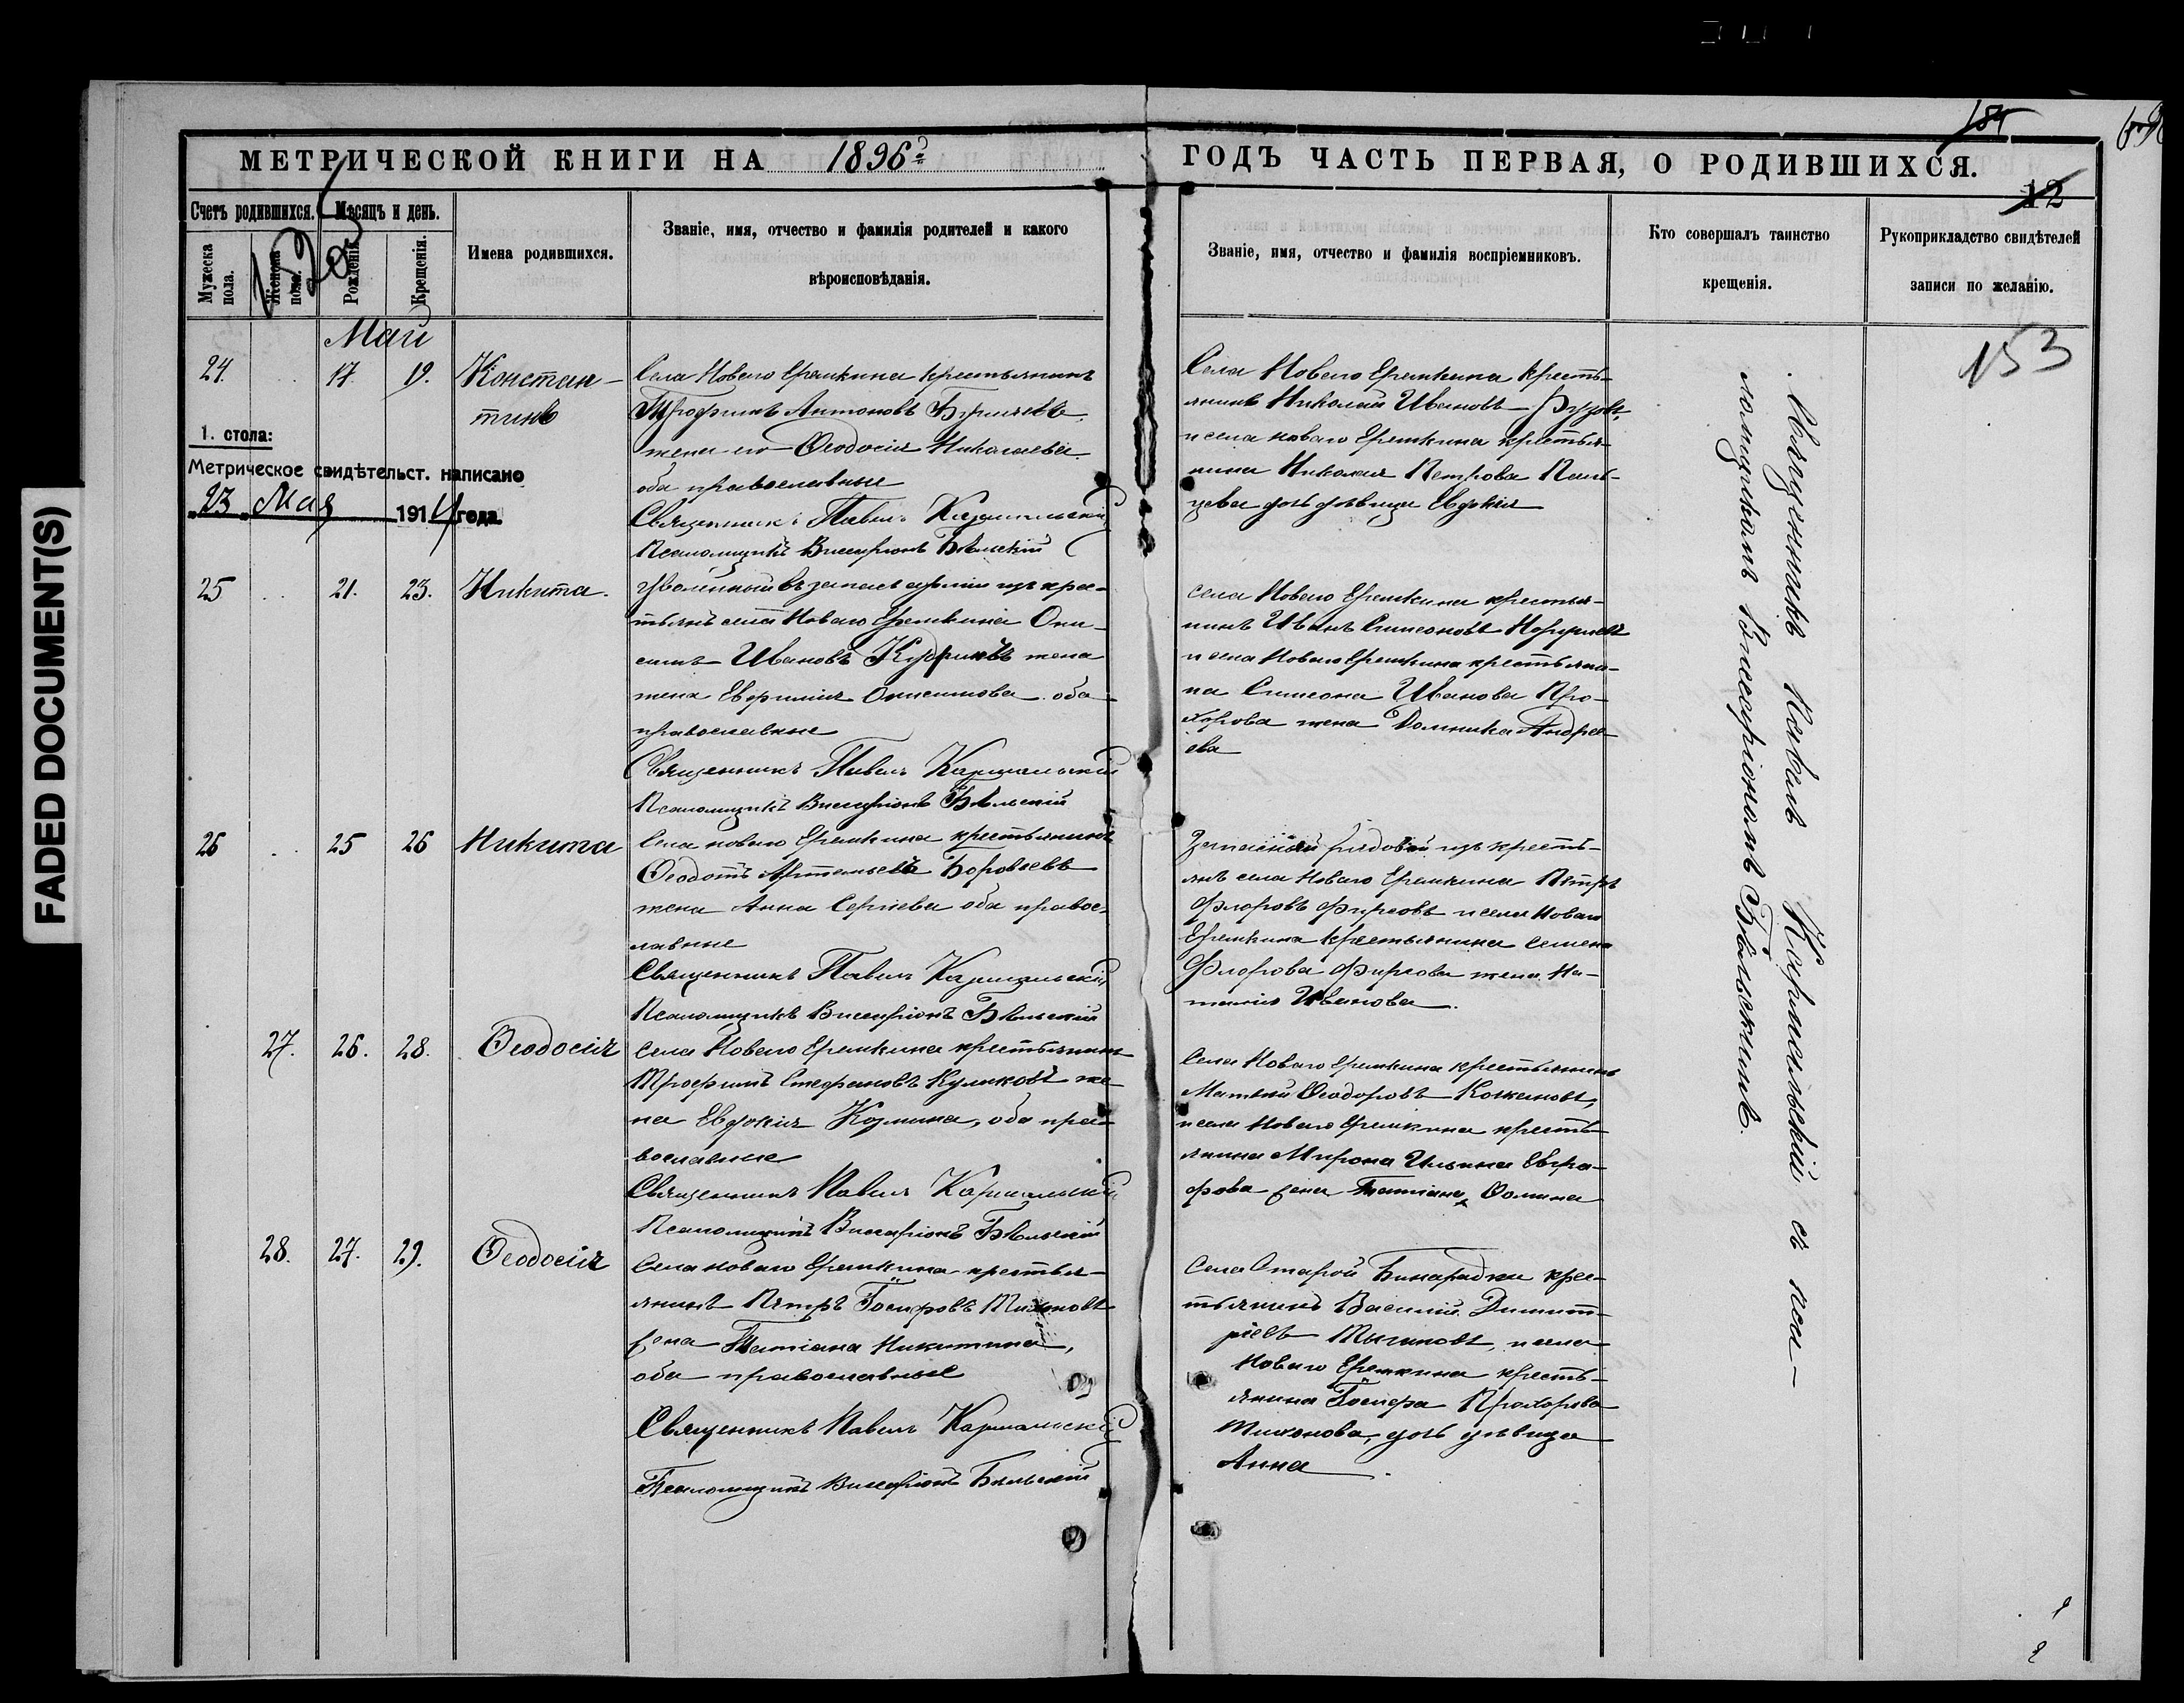 FADED DOCUMENT(S)
МЕТРИЧЕСКОЙ КНИГИ НА 1896 ГОДЪ ЧАСТЬ ПЕРВАЯ, О РОДИВШИХСЯ.
185
12
Счетъ родившихся.
Мѣсяцъ и день.
Мужеска пола.
Женска пола.
Рожденія.
Крещенія.
Имена родившихся.
Званіе, имя, отчество и фамилія родителей и какого
вѣроисповѣданія.
Званіе, имя, отчество и фамилія воспріемниковъ.
Кто совершалъ таинство
крещенія.
Рукоприкладство свидѣтелей
записи по желанію.
153
Май
24. 17. 19. Констан-
тинъ
1. стола:
Метрическое свидѣтельст. написано
23 Мая 1914 года.
Села Новаго Еремкина крестьянинъ
Трофимъ Антоновъ
жена его Ѳеодосія Николаева
оба православные
Священникъ Павелъ Кармальскій
Псаломщикъ Виссаріонъ Бѣльскій
Села Новаго Еремкина кресть-
янинъ Николай Ивановъ
и села Новаго Еремкина крестья-
нина Николая Петрова Паль-
цева дочь дѣвица Евдокія
25 21. 23. Никита.
Уволенный въ запасъ арміи изъ кре-
стьянъ села Новаго Еремкина Они-
симъ Ивановъ жена
жена Евфимія Онисимова оба
православные
Священникъ Павелъ Кармальскій
Псаломщикъ Виссаріонъ Бѣльскій
села Новаго Еремкина крестья-
нинъ Иванъ Симеоновъ
и села Новаго Еремкина крестьяни-
на Симеона Иванова Про-
хорова жена Домника Андре-
ева
26 25 26 Никита
Села Новаго Еремкина крестьянинъ
Ѳеодотъ Боровоевъ
жена Анна Сергіева оба правос-
лавные
Священникъ Павелъ Кармальскій
Псаломщикъ Виссаріонъ Бѣльскій
Запасный рядовой изъ кресть-
янъ села Новаго Еремкина Петръ
Флоровъ Фирсовъ и села Новаго
Еремкина крестьянина Семена
Флорова Фирсова жена На-
талія Иванова.
27. 26. 28. Ѳеодосія
Села Новаго Еремкина крестьянинъ
Трофимъ Стефановъ Куликовъ же-
на Евдокія Козмина, оба пра-
вославные
Священникъ Павелъ Кармальскій
Псаломщикъ Виссаріонъ Бѣльскій
Села Новаго Еремкина крестьянинъ
Матвѣй Ѳеодоровъ
и села Новаго Еремкина кресть-
янина Мирона Ильина Евгра-
фова жена Татіана Ѳомина
28. 27. 29. Ѳеодосія
Села Новаго Еремкина крестья-
янинъ Петръ Іосифовъ Тихоновъ
жена Татіана Никитина,
оба православные
Священникъ Павелъ Кармальскій
Псаломщикъ Виссаріонъ Бѣльскій
Села Старой Бинарадки кре-
стьянинъ Василій Димит-
ріевъ и села
Новаго Еремкина кресть-
янина Іосифа Прохорова
Тихонова, дочь дѣвица
Анна
Священникъ Павелъ Кармальскій съ пса-
ломщикомъ Виссаріономъ Бѣльскимъ.